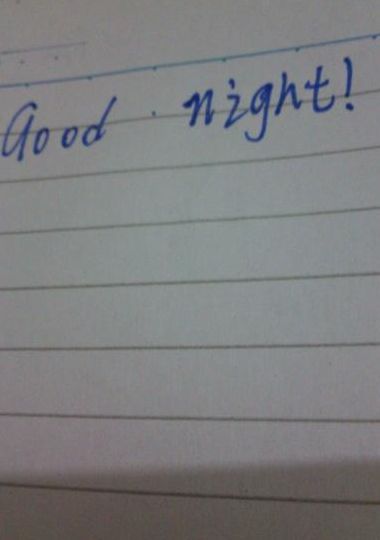 Good night!